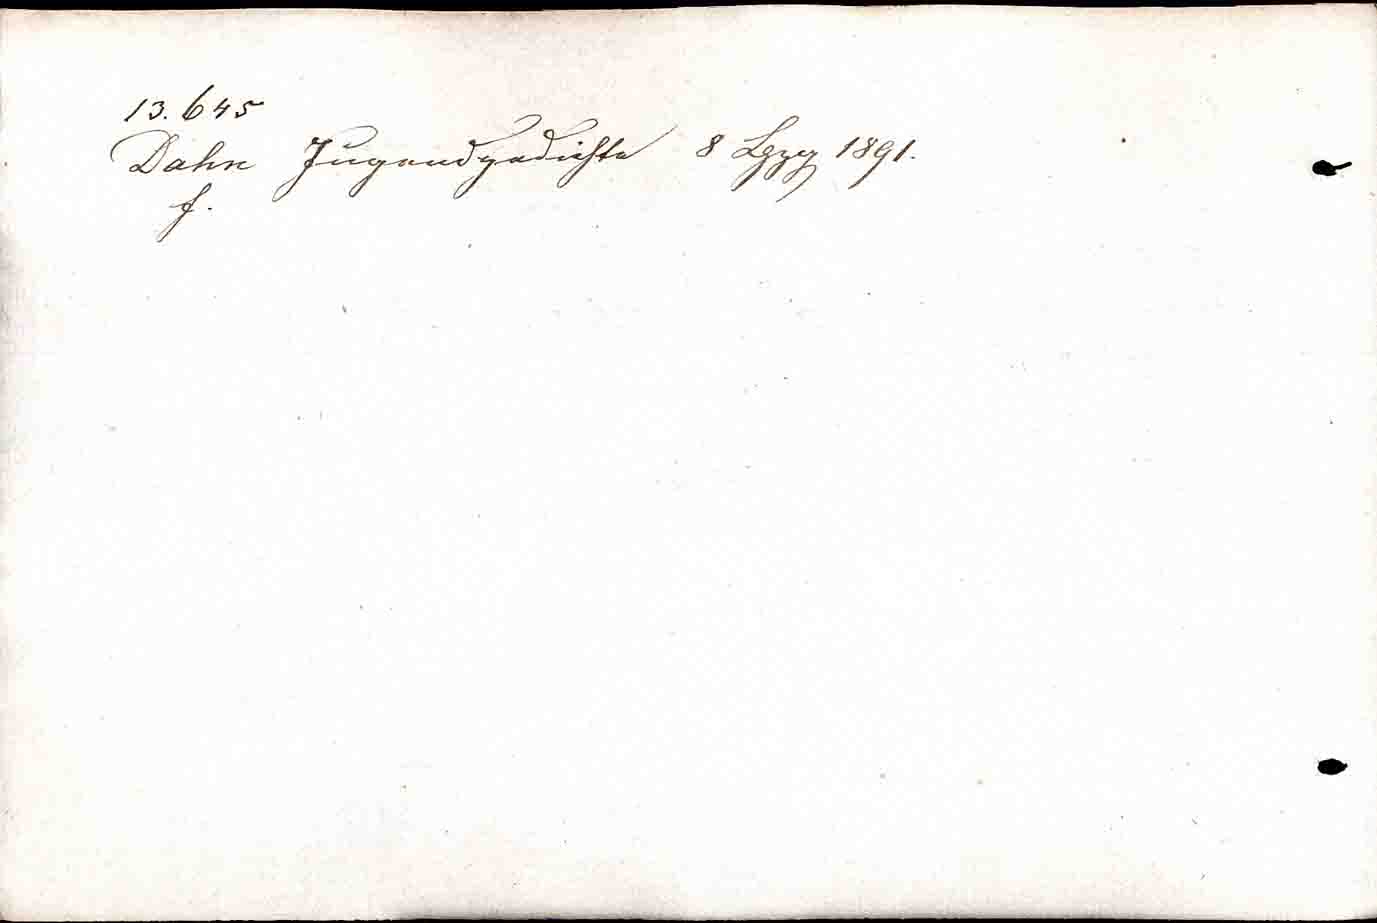 13.645
Dahn Jugendgedichte 8 Lpzg 1891.
f.